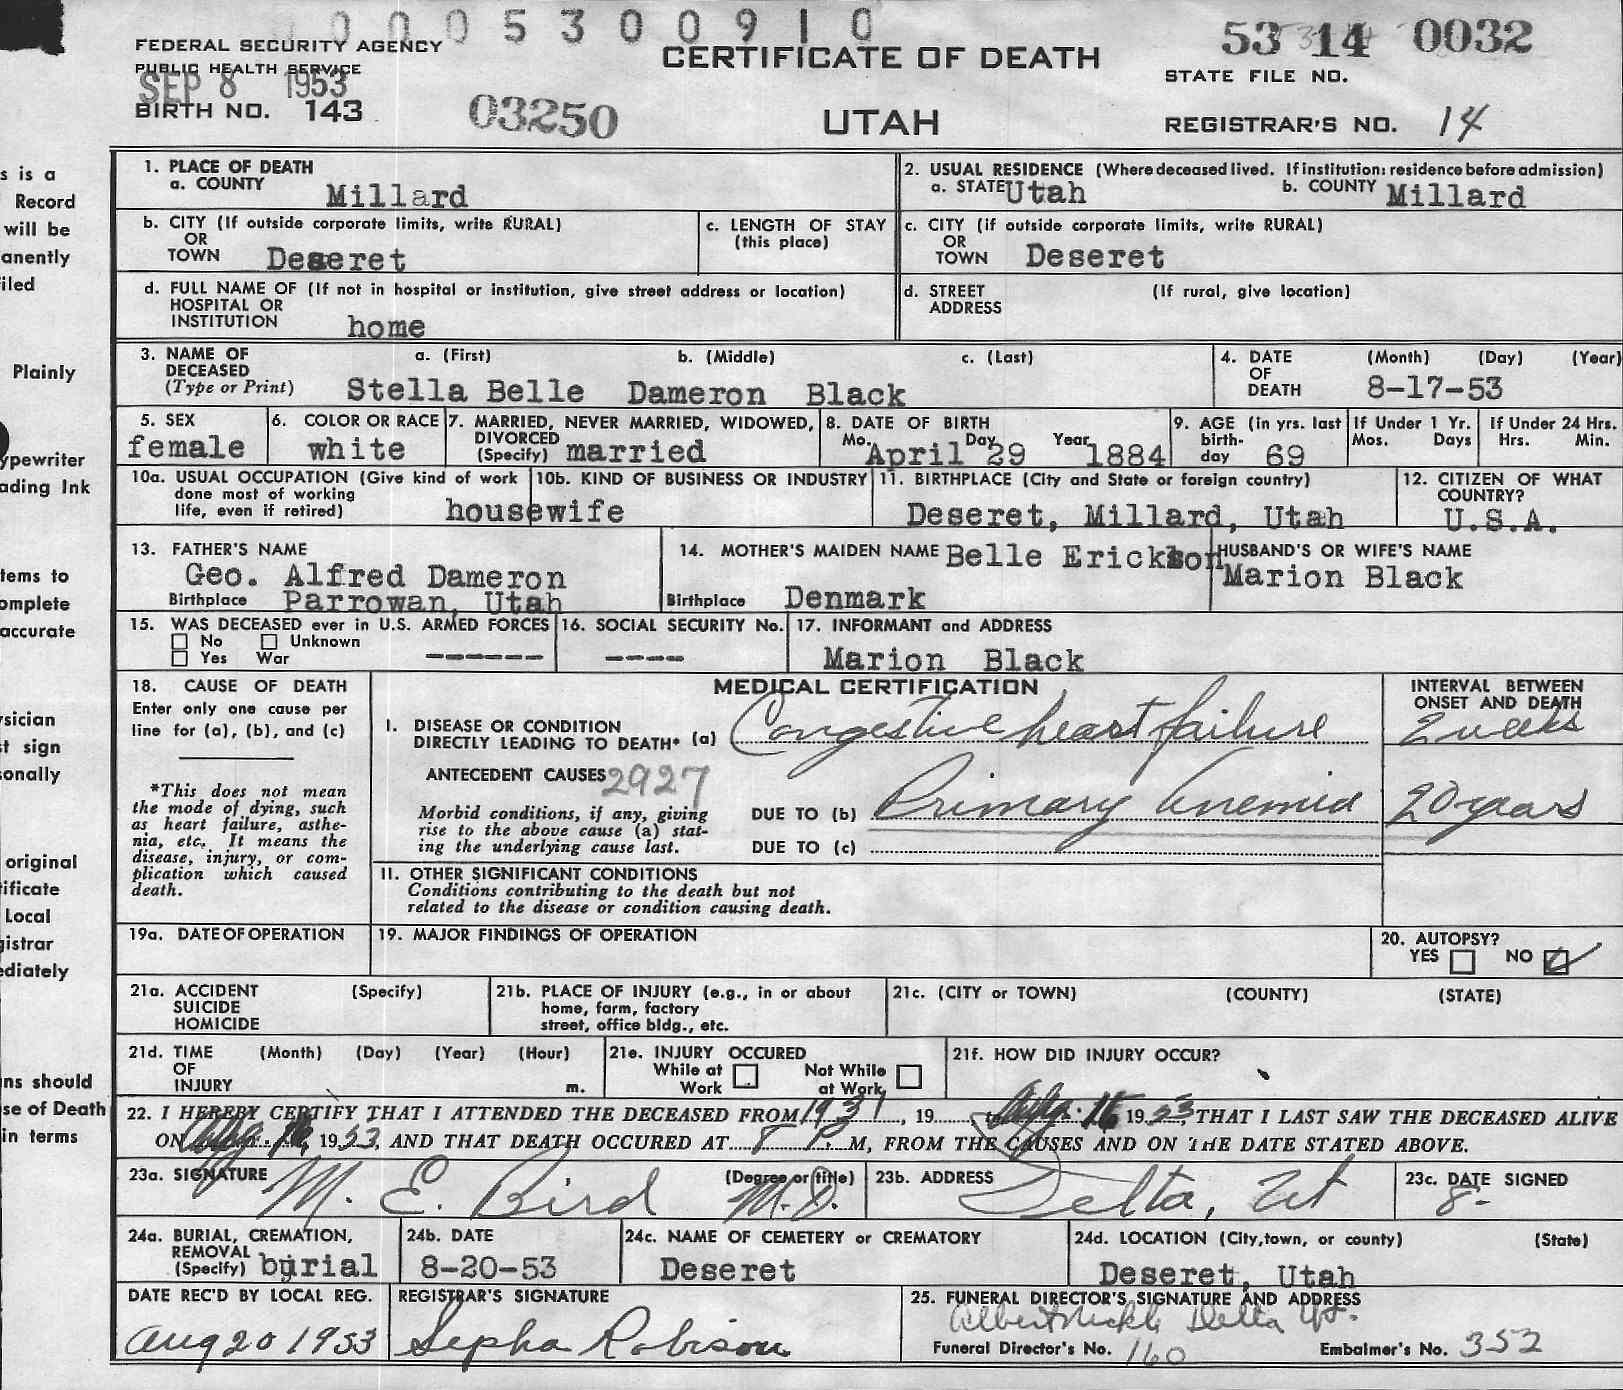 0 0 0 5 3 0 0 9 1 0
53 14 0032
FEDERAL SECURITY AGENCY
PUBLIC HEALTH SERVICE
SEP 8 1953
BIRTH NO. 143
03250
CERTIFICATE OF DEATH
UTAH
STATE FILE NO.
REGISTRAR'S NO. 14
s is a
Record
will be
anently
iled
Plainly
ypewriter
ading Ink
tems to
omplete
accurate
sician
t sign
sonally
original
tificate
Local
gistrar
ediately
ns should
se of Death
in terms
1. PLACE OF DEATH
a. COUNTY Millard
2. USUAL RESIDENCE (Where deceased lived. If institution: residence before admission)
a. STATE Utah b. COUNTY Millard
b. CITY (If outside corporate limits, write RURAL)
OR
TOWN Deseret
c. LENGTH OF STAY
(this place)
c. CITY (if outside corporate limits, write RURAL)
OR
TOWN Deseret
d. FULL NAME OF (If not in hospital or institution, give street address or location)
HOSPITAL OR
INSTITUTION home
d. STREET (If rural, give location)
ADDRESS
3. NAME OF a. (First) b. (Middle) c. (Last)
DECEASED
(Type or Print) Stella Belle Dameron Black
4. DATE (Month) (Day) (Year)
OF
DEATH 8-17-53
5. SEX
female
6. COLOR OR RACE
white
7. MARRIED, NEVER MARRIED, WIDOWED,
DIVORCED
(Specify) married
8. DATE OF BIRTH
Mo. Day Year
April 29 1884
9. AGE (in yrs. last
birth-
day 69
If Under 1 Yr.
Mos. Days
If Under 24 Hrs.
Hrs. Min.
10a. USUAL OCCUPATION (Give kind of work
done most of working
life, even if retired) housewife
10b. KIND OF BUSINESS OR INDUSTRY
11. BIRTHPLACE (City and State or foreign country)
Deseret, Millard, Utah
12. CITIZEN OF WHAT
COUNTRY?
U.S.A.
13. FATHER'S NAME
Geo. Alfred Dameron
Birthplace Parrowan, Utah
14. MOTHER'S MAIDEN NAME Belle Erickson
Birthplace Denmark
HUSBAND'S OR WIFE'S NAME
Marion Black
15. WAS DECEASED ever in U.S. ARMED FORCES
No Unknown
Yes War ------
16. SOCIAL SECURITY No.
----
17. INFORMANT and ADDRESS
Marion Black
18. CAUSE OF DEATH
Enter only one cause per
line for (a), (b), and (c)
*This does not mean
the mode of dying, such
as heart failure, asthe-
nia, etc. It means the
disease, injury, or com-
plication which caused
death.
MEDICAL CERTIFICATION
I. DISEASE OR CONDITION
DIRECTLY LEADING TO DEATH* (a) Congestive heart failure
ANTECEDENT CAUSES 2927
Morbid conditions, if any, giving
rise to the above cause (a) stat-
ing the underlying cause last.
DUE TO (b) Primary Anemia
DUE TO (c)
INTERVAL BETWEEN
ONSET AND DEATH
2 weeks
20 years
II. OTHER SIGNIFICANT CONDITIONS
Conditions contributing to the death but not
related to the disease or condition causing death.
19a. DATE OF OPERATION
19. MAJOR FINDINGS OF OPERATION
20. AUTOPSY?
YES NO
21a. ACCIDENT (Specify)
SUICIDE
HOMICIDE
21b. PLACE OF INJURY (e.g., in or about
home, farm, factory
street, office bldg., etc.
21c. (CITY or TOWN) (COUNTY) (STATE)
21d. TIME (Month) (Day) (Year) (Hour)
OF
INJURY m.
21e. INJURY OCCURED
While at Not While
Work at Work
21f. HOW DID INJURY OCCUR?
22. I HEREBY CERTIFY THAT I ATTENDED THE DECEASED FROM 1931, 19 Aug. 16 1953, THAT I LAST SAW THE DECEASED ALIVE
ON Aug. 16, 1953, AND THAT DEATH OCCURED AT 8 P. M, FROM THE CAUSES AND ON THE DATE STATED ABOVE.
23a. SIGNATURE (Degree or title)
M. E. Bird M.D.
23b. ADDRESS
Delta, Ut
23c. DATE SIGNED
8-
24a. BURIAL, CREMATION,
REMOVAL
(Specify) burial
24b. DATE
8-20-53
24c. NAME OF CEMETERY or CREMATORY
Deseret
24d. LOCATION (City, town, or county) (State)
Deseret, Utah
DATE REC'D BY LOCAL REG.
Aug 20 1953
REGISTRAR'S SIGNATURE
Sepha Robison
25. FUNERAL DIRECTOR'S SIGNATURE AND ADDRESS
Albert Nickle Delta Ut.
Funeral Director's No. 160 Embalmer's No. 352